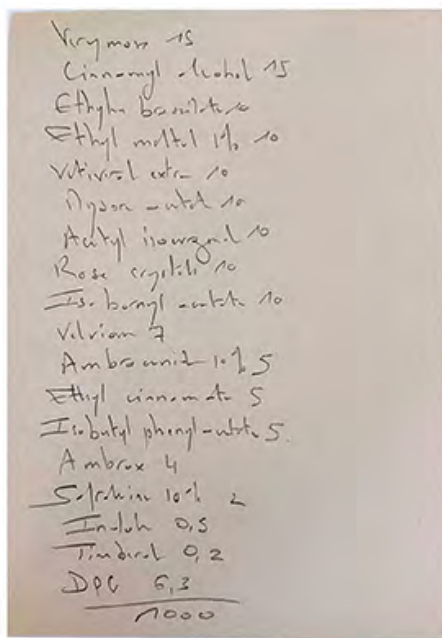 Verymoss 15
Cinnamyl alcohol 15
Ethylen brassilate 10
Ethyl maltol 1% 10
Vetiverol extra 10
acetate 10
Acetyl isoeugenol 10
Rose crystals 10
Iso bornyl acetate 10
Velvione 7
Ambrocenide 10% 5
Ethyl cinnamate 5
Isobutyl phenylacetate 5
Ambrox 4
Safraline 10% 2
Indole 0,5
Timberol 0,2
DPG 6,3
1000